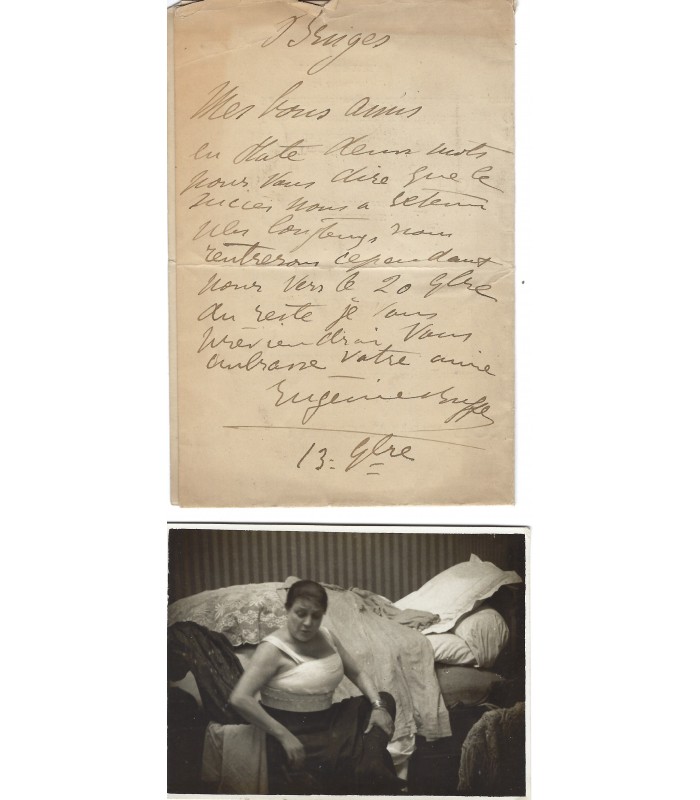 Bruges
Mes bons amis
en hate deux mots
pour vous dire que le
succès nous a retenu
plus longtemps, nous
rentrerons cependant
pour vers le 20 9bre
du reste je vous
préviendrai Vous
embrasse votre amie
Eugénie Buffet
13 = 9bre